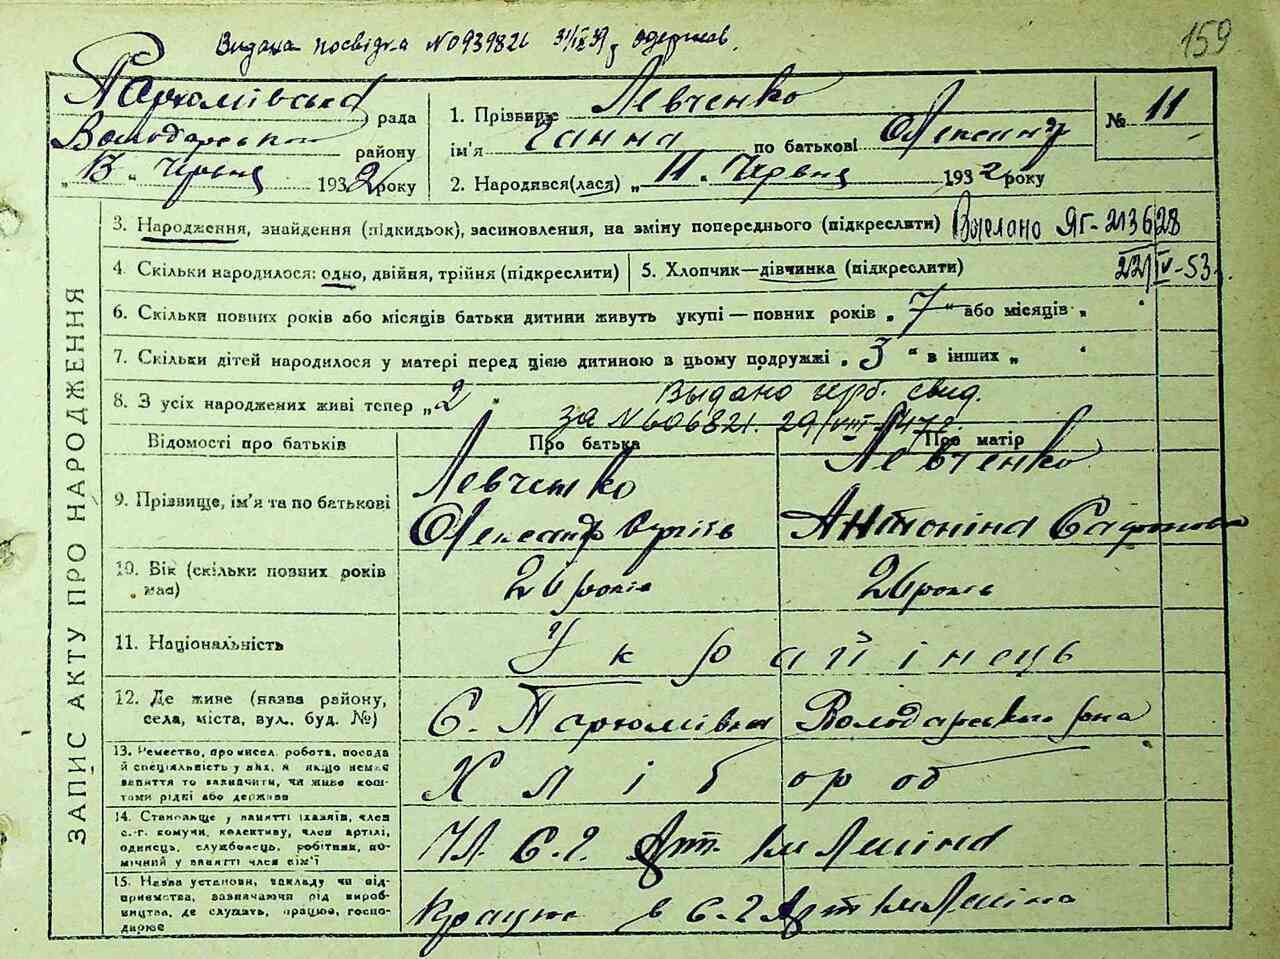 Видана посвідка №0939826 31/ІХ 39 р. одержав.
159
Пархомівська рада
Володарського району
"13" Червня 1932 року
1. Прізвище Левченко
ім'я Ганна по батькові Олександр
2. Народився(лася) "11" Червня 1932 року
№ 11
ЗАПИС АКТУ ПРО НАРОДЖЕННЯ
3. Народження, знайдення (підкидьок), засиновлення, на зміну попереднього (підкреслити) ЯГ-213628
4. Скільки народилося: одно, двійня, трійня (підкреслити)
5. Хлопчик—дівчинка (підкреслити)
22/IV-53
6. Скільки повних років або місяців батьки дитини живуть укупі — повних років "7" або місяців "
7. Скільки дітей народилося у матері перед цією дитиною в цьому подружжі "3" в інших "
8. З усіх народжених живі тепер "2"
Выдано герб. свид.
за №606821. 29/VIII-47г.
Відомості про батьків
Про батька
Про матір
9. Прізвище, ім'я та по батькові
Левченко
Олександр
Левченко
Антоніна Сафонівна
10. Вік (скільки повних років має)
26 років
26 років
11. Національність
Українець
12. Де живе (назва району,
села, міста, вул., буд. №)
С. Пархомівка Володарського р-на
13. Ремество, промисел, робота, посада
й спеціяльність у них, а якщо немає
заняття то зазначити, чи живе кош-
тами рідні або держави
Хлібороб
14. Становище у занятті (хазяїн, член
с.-г. комуни, колективу, член артілі,
одинець, службовець, робітник, по-
мічний у занятті член сім'ї
Чл. С.-г. Арт. ім Леніна
15. Назва установи, закладу чи під-
приємства, зазначаючи рід вироб-
ництва, де служать, працює, госпо-
дарює
Працює в С-г Арт ім Леніна